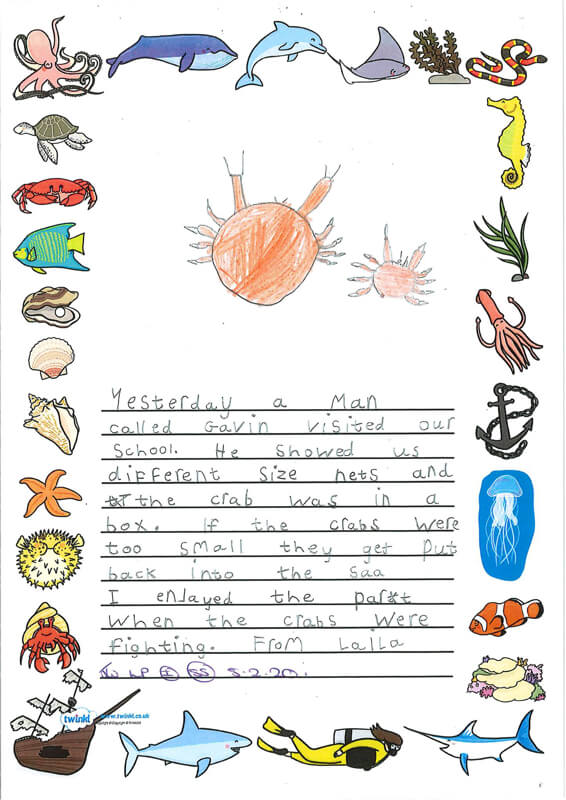 Yesterday a Man
called Gavin visited our
School. He showed us
different size nets and
the crab was in a
box. If the crabs were
too small they get put
back into the saa
I enJayed the part
When the crabs were
fighting. From Laila
5.2.20.
twinkl www.twinkl.co.uk